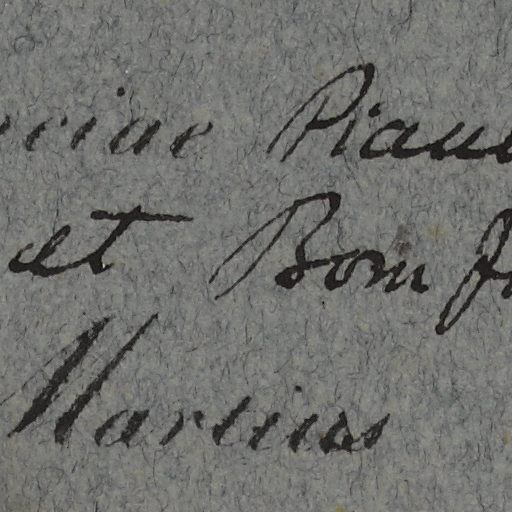 ciae Piau
et Bom J
Martius